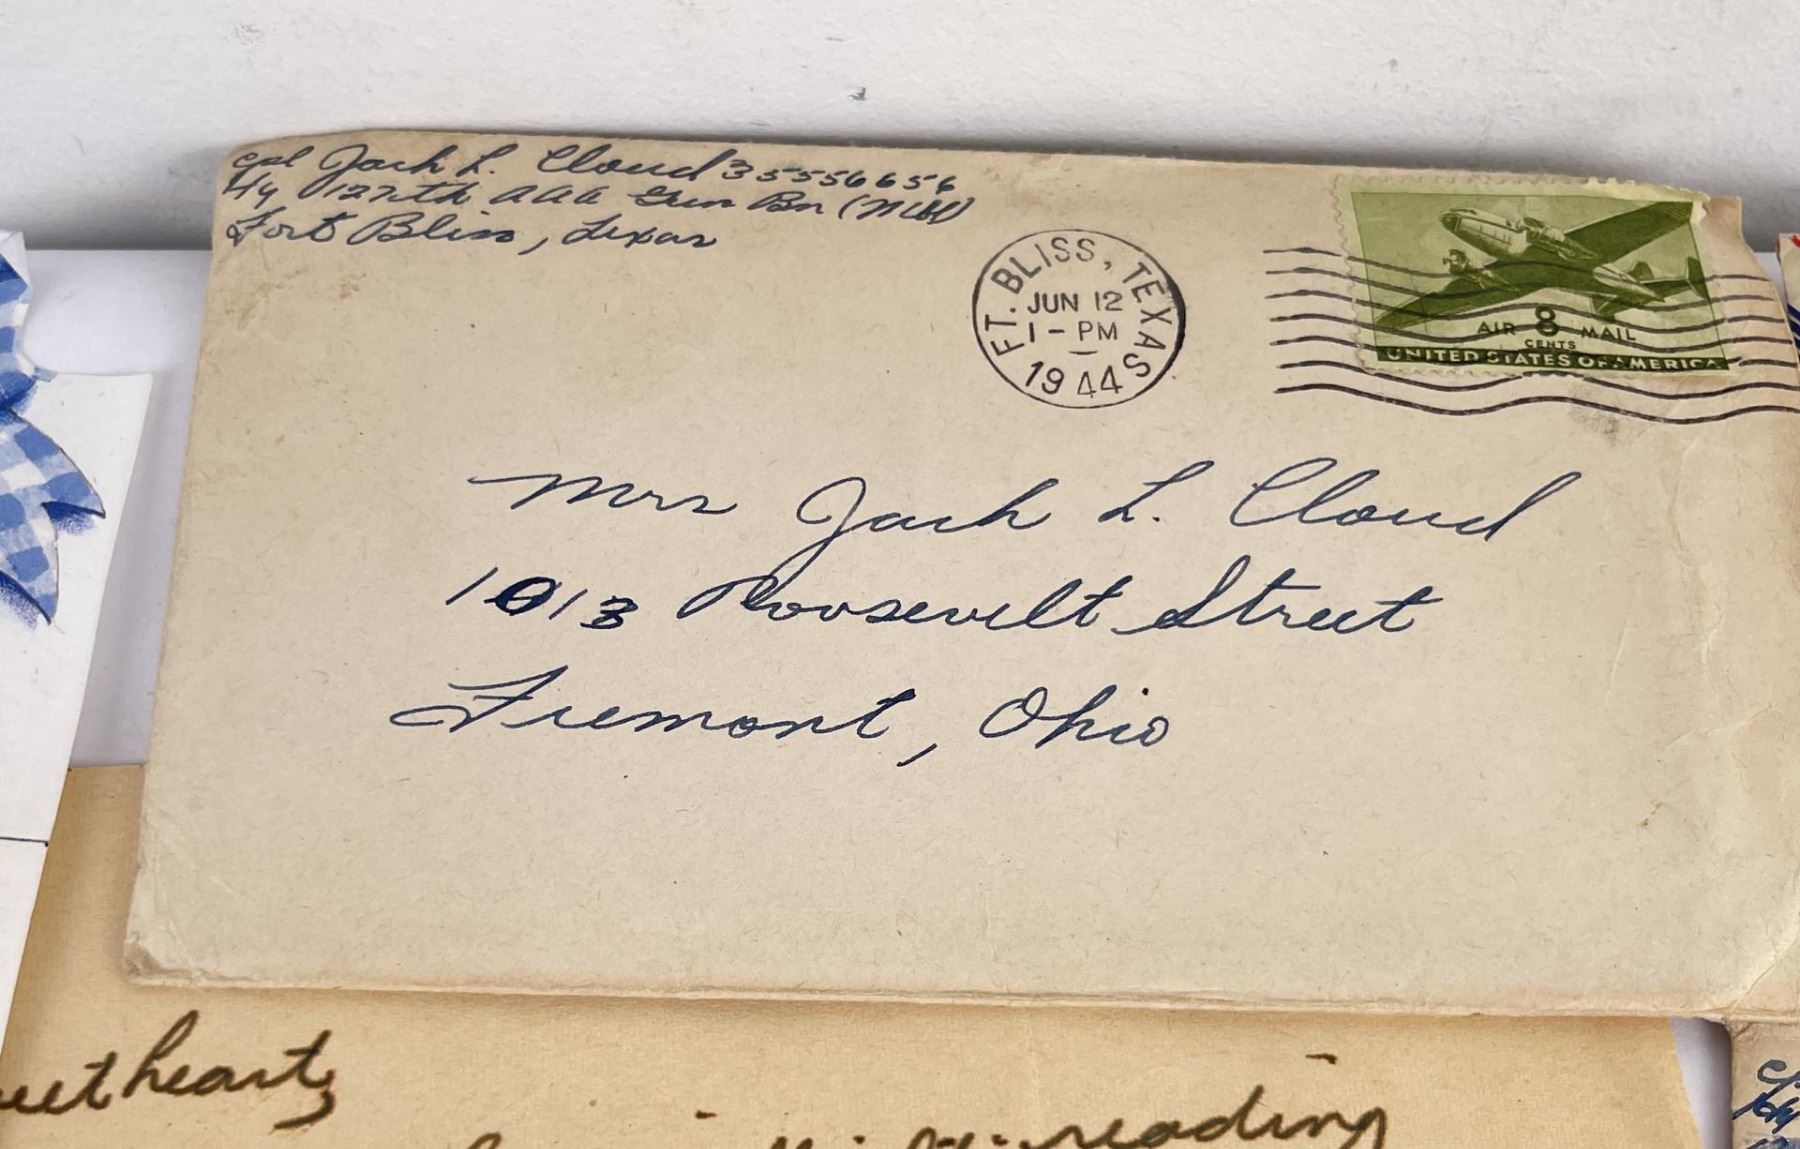 Cpl Jack L. Cloud 35556656
Hq 127th AAA Gun Bn (Mbl)
Fort Bliss, Texas
FT. BLISS, TEXAS
JUN 12
1 - PM
1944
AIR 8 MAIL
CENTS
UNITED STATES OF AMERICA
Mrs Jack L. Cloud
1013 Roosevelt Street
Fremont, Ohio
reading